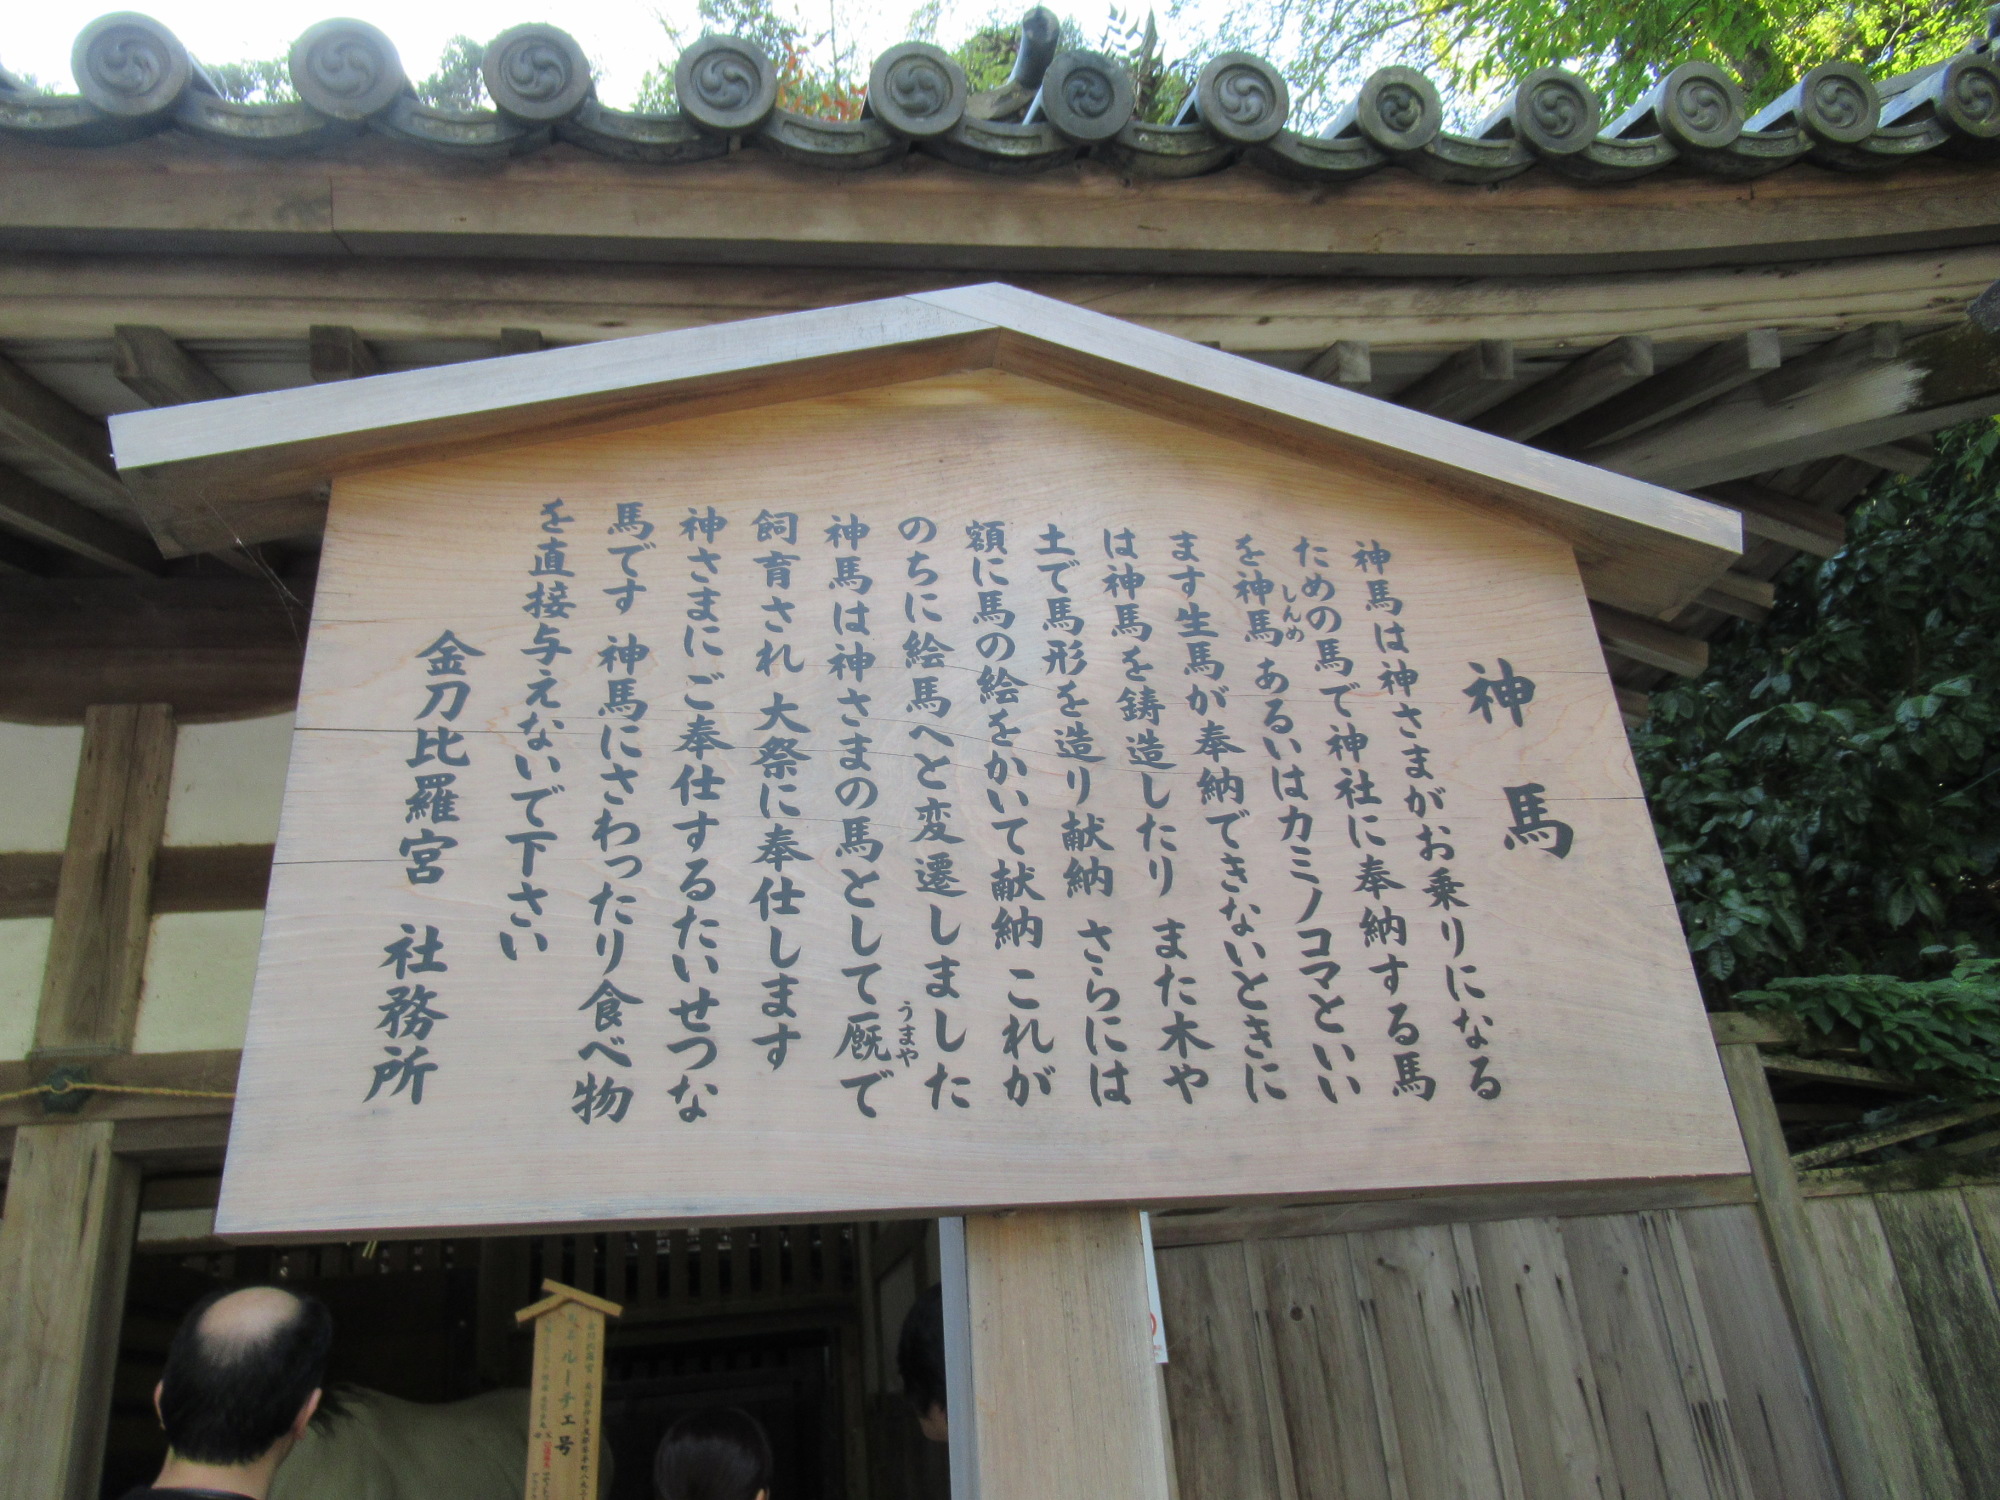 神馬
神馬は神さまがお乗りになる
ための馬で神社に奉納する馬
を神馬あるいはカミノコマといい
しんめ
ます生馬が奉納できないときに
は神馬を鋳造したり また木や
土で馬形を造り献納 さらには
額に馬の絵をかいて献納 これが
のちに絵馬へと変遷しました
神馬は神さまの馬として厩で
うまや
飼育され 大祭に奉仕します
神さまにご奉仕するたいせつな
馬です 神馬にさわったり食べ物
を直接与えないで下さい
金刀比羅宮 社務所
ルーチェ号